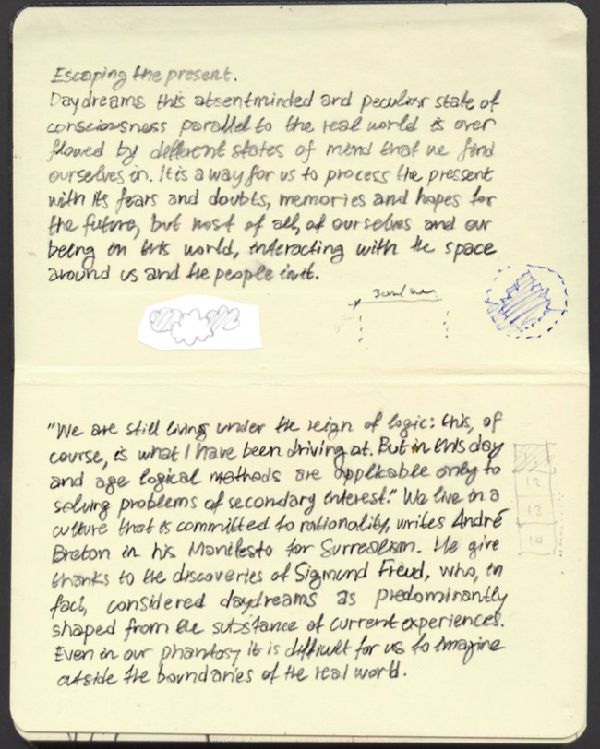 Escaping the present.
Daydreams this absentminded and peculiar state of
consciousness parallel to the real world is over
flowed by different states of mind that we find
ourselves in. It is a way for us to process the present
with its fears and doubts, memories and hopes for
the future, but most of all, of ourselves and our
being on this world, interacting with the space
around us and the people in it.
"We are still living under the reign of logic: this, of
course, is what I have been driving at. But in this day
and age logical methods are applicable only to
solving problems of secondary interest." We live in a
culture that is committed to rationality, writes André
Breton in his Manifesto for Surrealism. He give
thanks to the discoveries of Sigmund Freud, who, in
fact, considered daydreams as predominantly
shaped from the substance of current experiences.
Even in our phantasy it is difficult for us to imagine
outside the boundaries of the real world.